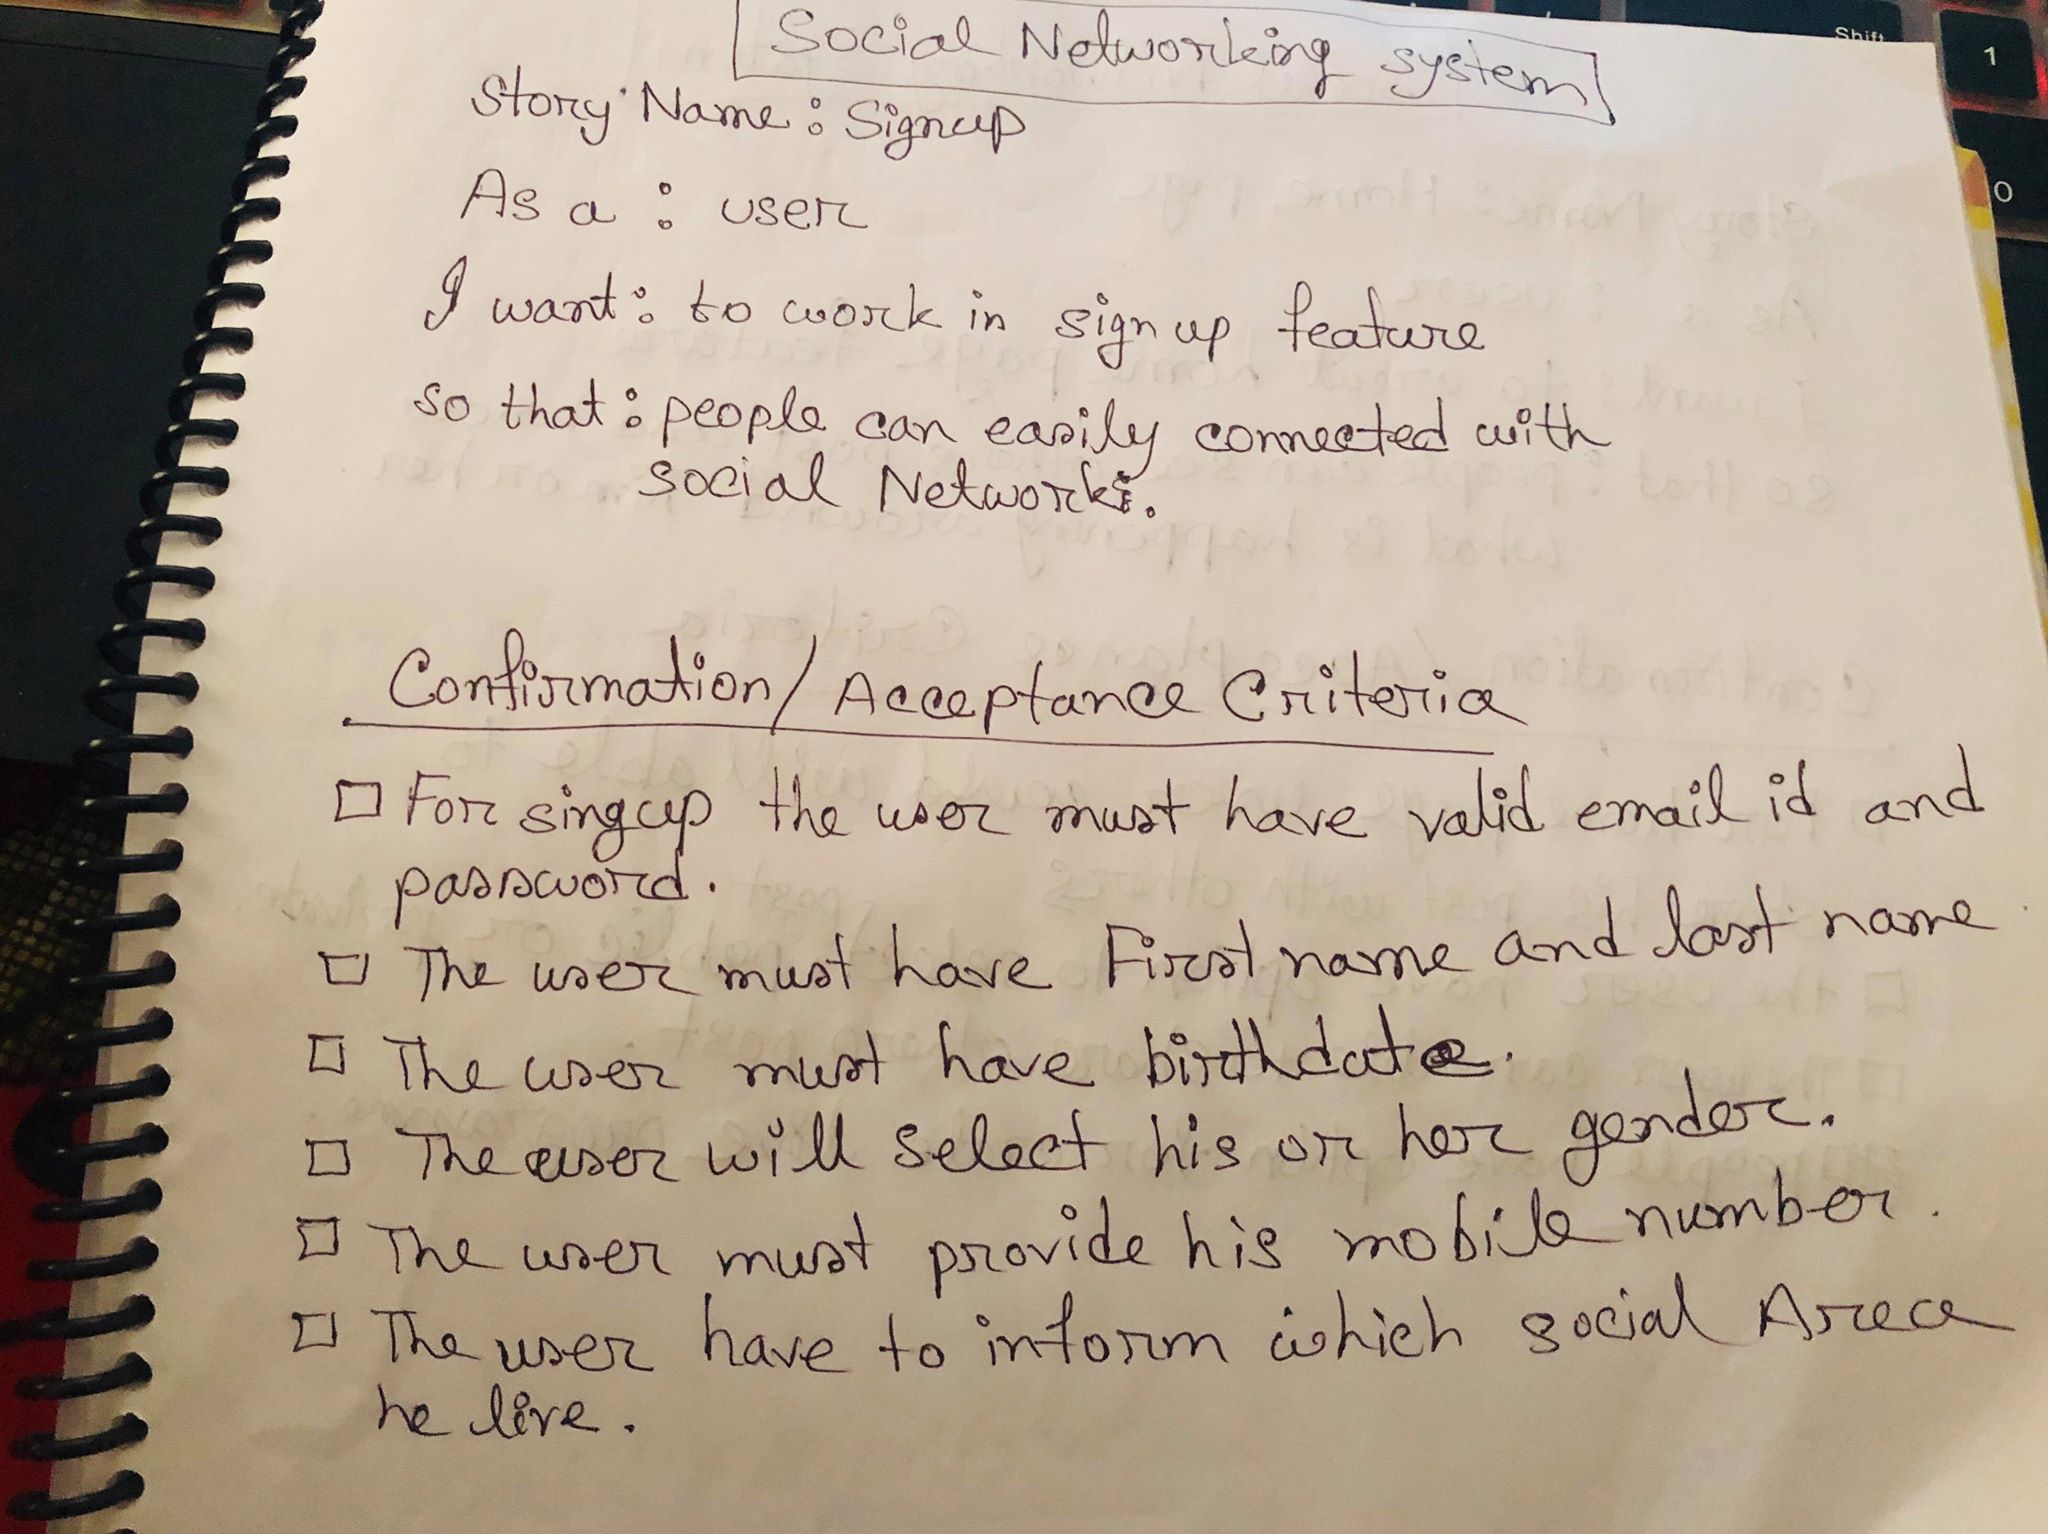 Social Networking system
Story Name: Signup
As a : user
I want: to work in sign up feature
so that: people can easily connected with
social Networks.
Confirmation/Acceptance Criteria
For singup the user must have valid email id and
password.
The user must have First name and last name
The user must have birthdate.
The user will select his or her gender.
The user must provide his mobile number.
The user have to inform which social Area
he live.
Shift
1
0